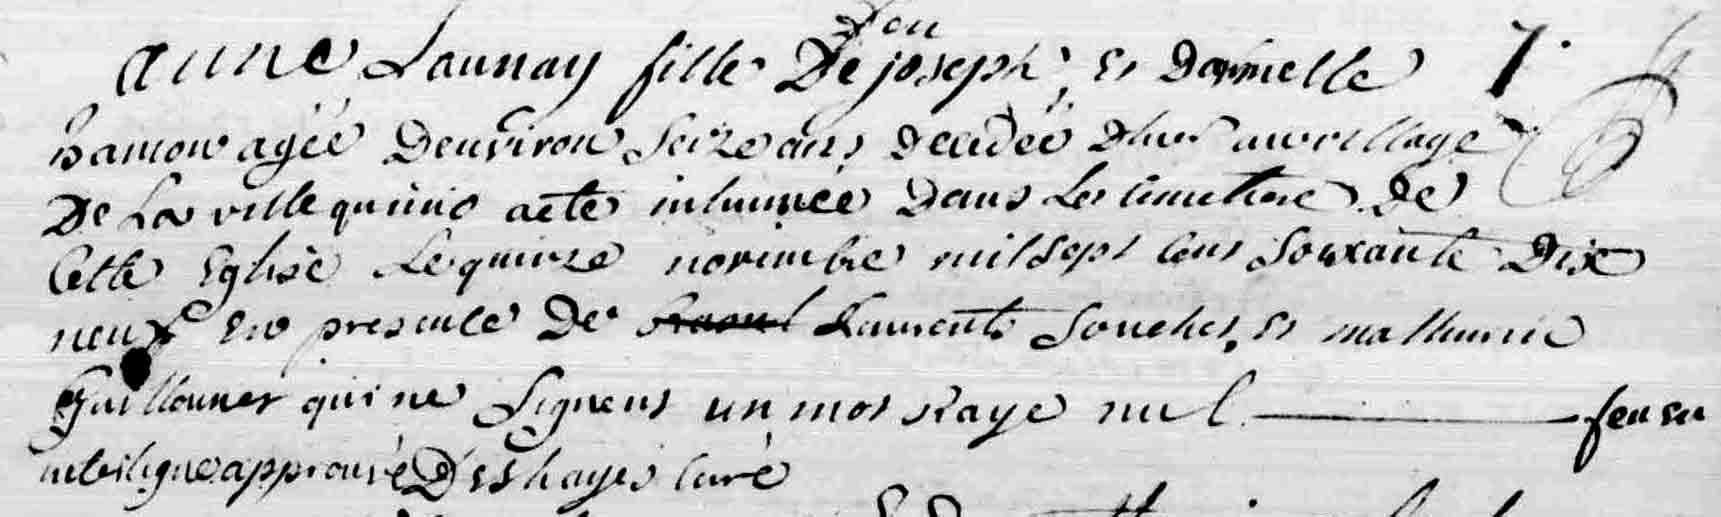 feu
anne Launay fille De joseph, et Dannielle 7.
hamon agée Denviron Seize ans Decedée d'hier au village
De La ville quinio a eté inhumée Dans Le cimettiere De
Cette Eglise Le quinze novembre mil sept cens Soixante Dix
neuf en presence De Laurents Souchet, et mathurin
Guillouner qui ne Signent un mot Rayé nul feu en
interligne approuvé Deshayes curé